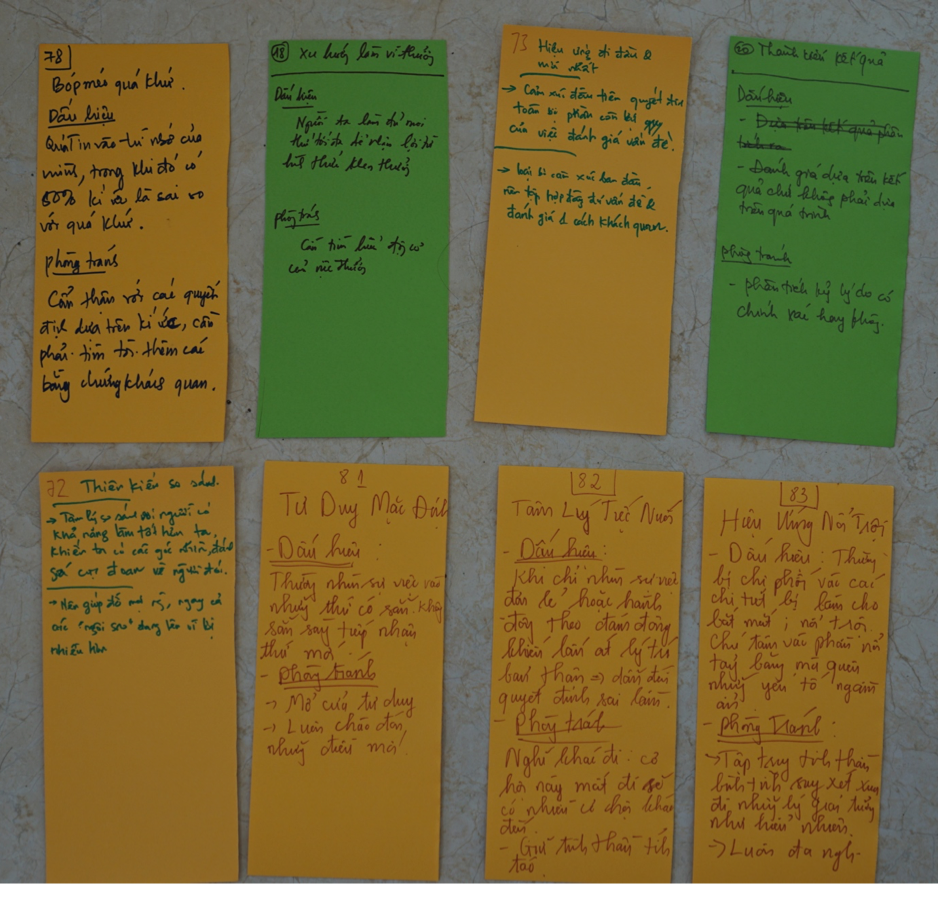 78
Bóp méo quá khứ.
Dấu hiệu
Quá Tin vào trí nhớ của
mình, trong khi đó có
50% kí ức là sai so
với quá khứ.
phòng tránh
Cẩn thận với các quyết
định dựa trên kí ức, cần
phải tìm tòi thêm các
bằng chứng khác quan.
18 Xu hướng làm vì thưởng
Dấu hiệu
Người ta làm đủ mọi
thứ tối đa
phòng tránh
Cần tìm hiểu động cơ
73 Hiệu ứng đi đầu &
mới nhất
→ Cảm xúc đầu tiên quyết định
toàn bộ phần còn lại
của việc đánh giá vấn đề.
→ loại bỏ cảm xúc ban đầu,
nên tập hợp vấn đề &
đánh giá 1 cách khách quan.
20 Thành kiến kết quả
Dấu hiệu
- Dựa trên kết quả phán
- Đánh giá dựa trên kết
quả chứ không phải dựa
trên quá trình
phòng tránh
- phân tích kỹ lý do có
chính xác hay không.
72 Thiên kiến so sánh.
→ Tâm lý so sánh với người có
khả năng làm tốt hơn ta,
khiến ta có cái đánh
giá cực đoan về người đó.
→ Nên giúp đỡ mọi người, ngay cả
các "ngôi sao" đang lên vì bị
nhiều khi
81
Tư Duy Mặc Định
- Dấu hiệu :
Thường nhìn sự việc với
những thứ có sẵn. Không
sẵn sàng tiếp nhận
thứ mới.
- phòng tránh
→ Mở cửa tư duy
→ Luôn chào đón
những điều mới.
82
Tâm Lý Tiếc Nuối
- Dấu hiệu :
Khi chỉ nhìn sự việc
đơn lẻ hoặc hành
động theo đám đông
khiến lấn át lý trí
bản thân => dẫn đến
quyết định sai lầm.
- Phòng tránh
Nghĩ khác đi : cơ
hội này mất đi sẽ
có nhiều cơ hội khác
đến.
- Giữ tinh thần tỉnh
táo.
83
Hiệu Ứng Nổi Trội
- Dấu hiệu : Thường
bị chi phối với các
chi tiết bị làm cho
bắt mắt, nổi trội
Chú tâm vào phần nổi
tảng băng mà quên
những yếu tố ngầm
ẩn.
- phòng Tránh :
→ Tập trung tinh thần
bình tĩnh suy xét xem
đi những lý giải tưởng
như hiển nhiên.
→ Luôn đa nghi.